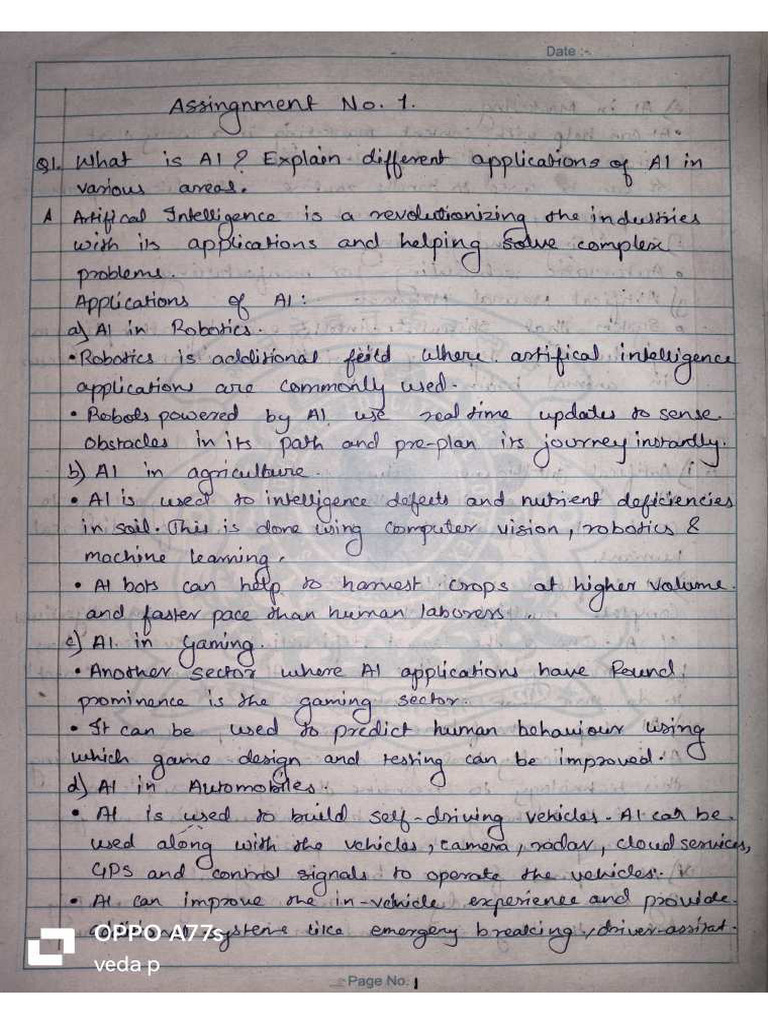 Date :-
Assingnment No. 1.
Q1. What is AI? Explain different applications of AI in
various areas.
A Artifical Intelligence is a revolutionizing the industries
with its applications and helping solve complex
problems.
Applications of AI :
a) AI in Robotics.
• Robotics is additional feild where artifical intelligence
applications are commonly used.
• Robots powered by AI use real time updates to sense
obstacles in its path and pre-plan its journey instantly.
b) AI in agriculture.
• AI is used to intelligence defects and nutrient deficiencies
in soil. This is done using computer vision, robotics &
machine learning.
• AI bots can help to harvest crops at higher volume
and faster pace than human laborers.
c) AI in Gaming.
• Another sector where AI applications have found
prominence is the gaming sector.
• It can be used to predict human behaviour using
which game design and testing can be improved.
d) AI in Automobiles.
• AI is used to build self-driving vehicles. AI can be
used along with the vehicles, camera, radar, cloud services,
GPS and control signals to operate the vehicles.
• AI can improve the in-vehicle experience and provide
systems like emergery breaking, driver-assist.
OPPO A77s
veda p
Page No. 1